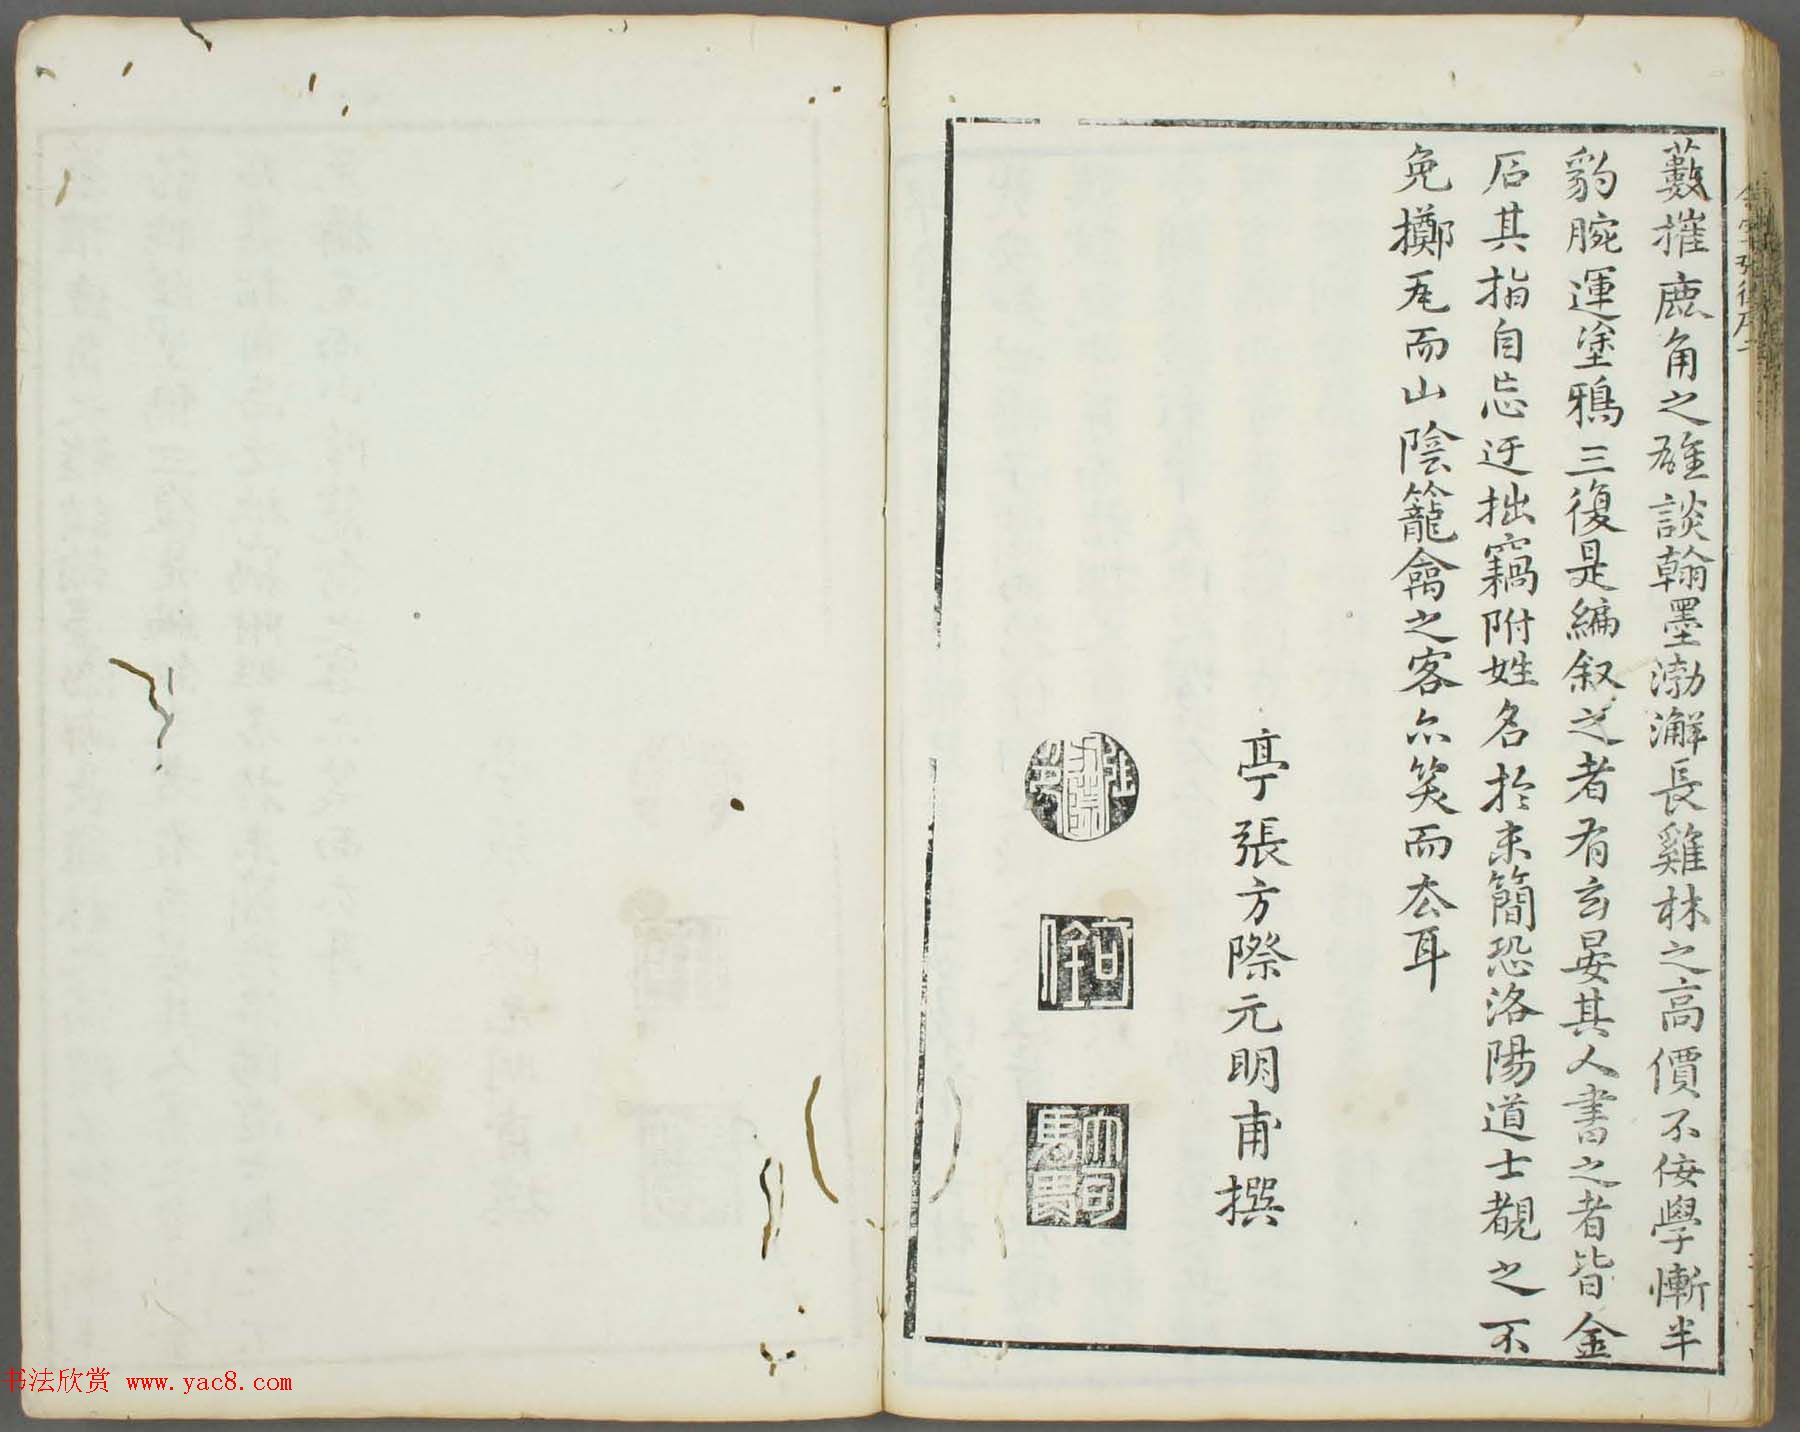 藪摧鹿角之雄談翰墨渤澥長雞林之高價不佞學慚半
豹腕運塗鴉三復是編叙之者有玄晏其人書之者皆金
石其指自忘迂拙竊附姓名於末簡恐洛陽道士覩之不
免擲瓦而山陰籠禽之客亦笑而去耳
亭張方際元明甫撰
书法欣赏 www.yac8.com